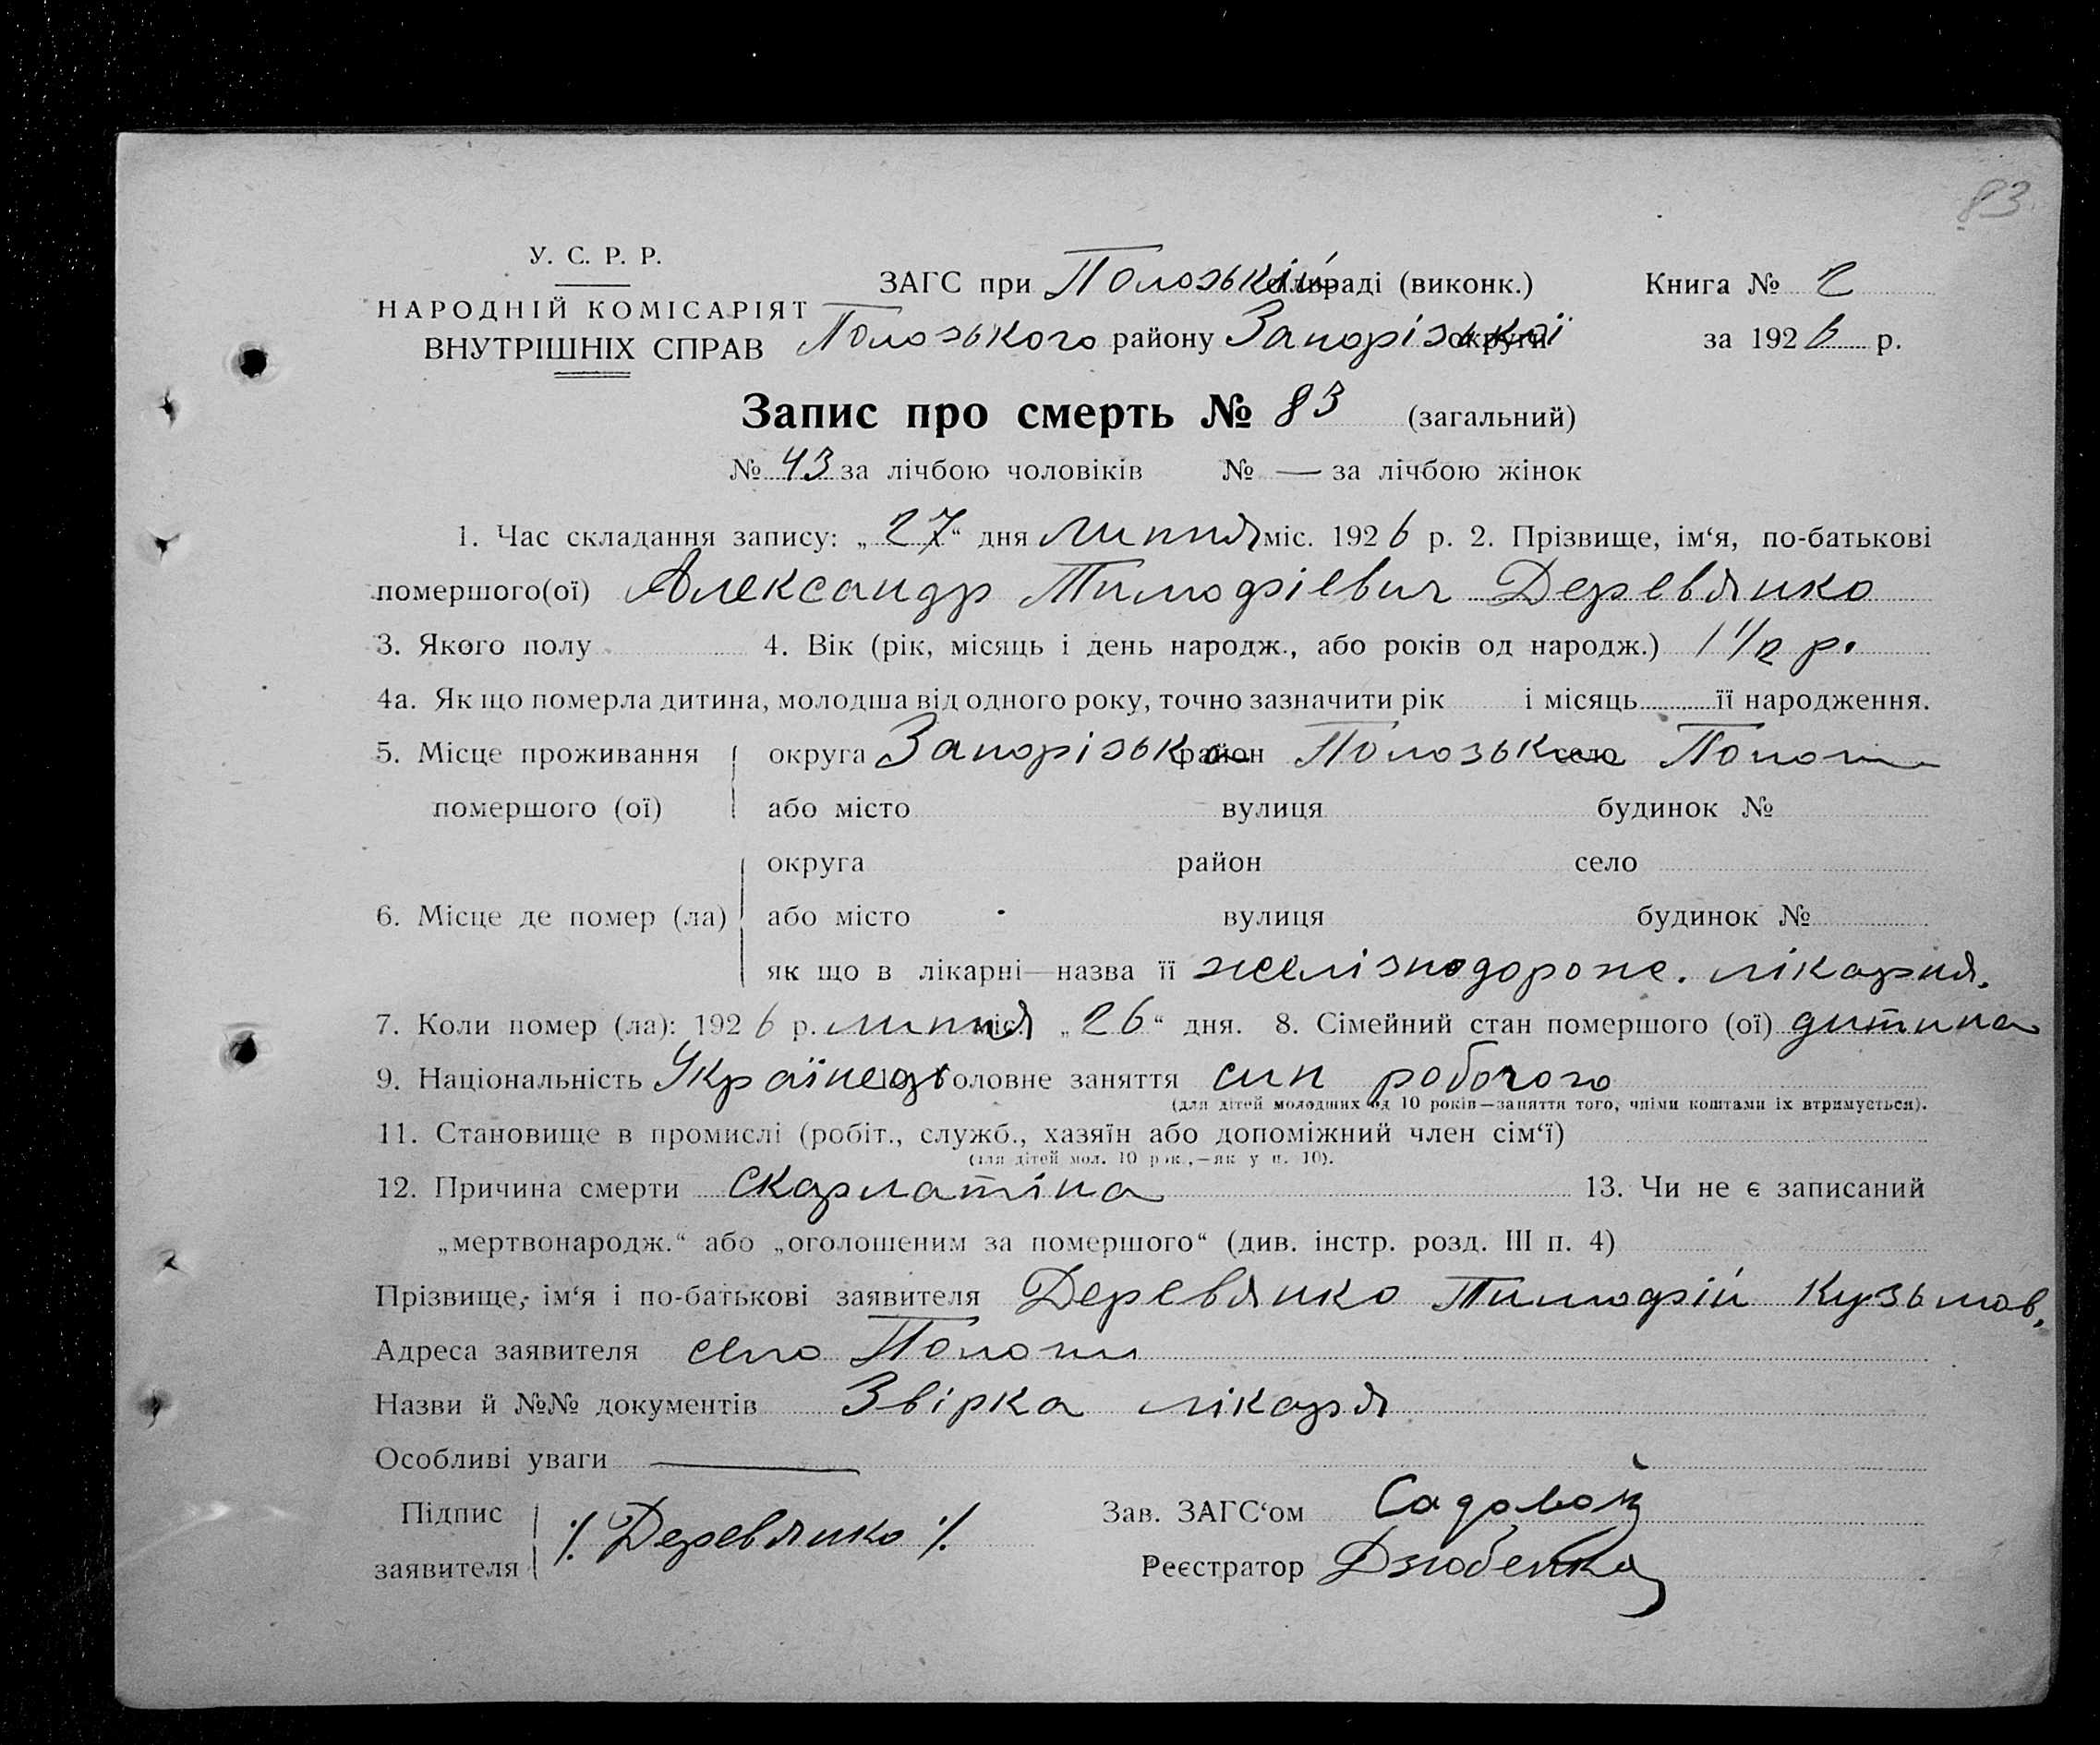 83
У. С. Р. Р.
НАРОДНІЙ КОМІСАРІЯТ
ВНУТРІШНІХ СПРАВ
ЗАГС при Полозькій сільраді (виконк.)
Полозького району Запорізької округи
Книга № 2
за 1926 р.
Запис про смерть № 83 (загальний)
№ 43 за лічбою чоловіків № — за лічбою жінок
1. Час складання запису: „27“ дня липня міс. 1926 р. 2. Прізвище, ім‘я, по-батькові
помершого(ої) Александр Тимофієвич Деревянко
3. Якого полу 4. Вік (рік, місяць і день народж., або років од народж.) 1 1/2 р.
4а. Як що померла дитина, молодша від одного року, точно зазначити рік і місяць її народження.
5. Місце проживання округа Запорізька район Полозьки село Пологи
помершого (ої) або місто вулиця будинок №
округа район село
6. Місце де помер (ла) або місто вулиця будинок №
як що в лікарні—назва її желізнодорож. лікарня.
7. Коли помер (ла): 1926 р. липня міс. „26“ дня. 8. Сімейний стан помершого (ої) дитина
9. Національність Українець 10. Головне заняття син робочого
(для дітей молодших од 10 років—заняття того, чиїми коштами їх втримується).
11. Становище в промислі (робіт., служб., хазяїн або допоміжний член сім‘ї)
(для дітей мол. 10 рок.,—як у п. 10).
12. Причина смерти скарлатіна 13. Чи не є записаний
„мертвонародж.“ або „оголошеним за помершого“ (див. інстр. розд. III п. 4)
Прізвище, ім‘я і по-батькові заявителя Деревянко Тимофій Кузьмов.
Адреса заявителя село Пологи
Назви й №№ документів Звірка лікаря
Особливі уваги —
Підпис заявителя ./. Деревянко ./.
Зав. ЗАГС‘ом Садовой
Реєстратор Дзюбенко